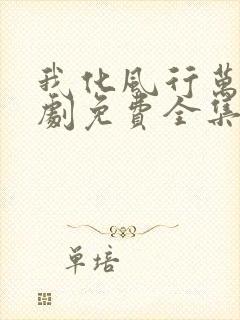 我化風行萬
劇免費全集
单培